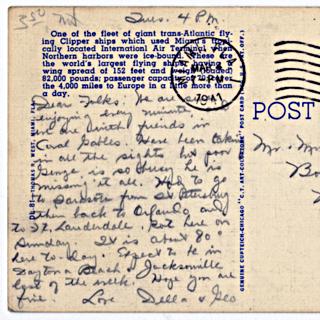 350
Tues. 4 P.m.
One of the fleet of giant trans-Atlantic fly-
ing Clipper ships which used Miami's tropi-
cally located International Air Terminal when
Northern harbors were ice-bound. These are
the world's largest flying ships, having a
wing spread of 152 feet and weight (loaded)
82,000 pounds; passenger capacity of 70 over
the 4,000 miles to Europe in a little more than
a day.
MIAMI
MAR
PM
1941
POST
Dear Folks: We are
enjoying every minute.
we are with friends
Coral Gables. Have been taking
in all the sights but poor
George is so busy he is
missing it all. Had to go
to Sarasota from St Petersburg
then back to Orlando and
to Ft. Lauderdale. Got here on
Sunday. It is about 80°
here to-day. Expect to be in
Daytona Beach & Jacksonville
last of the week. Hope you are
fine. Love Della & Geo
Mr. + M
Bo
DL-81—THOMAS WEST, MIAMI, FLA.
GENUINE CURTEICH-CHICAGO "C.T. ART-COLORTONE" POST CARD (REG. U.S. PAT. OFF.)